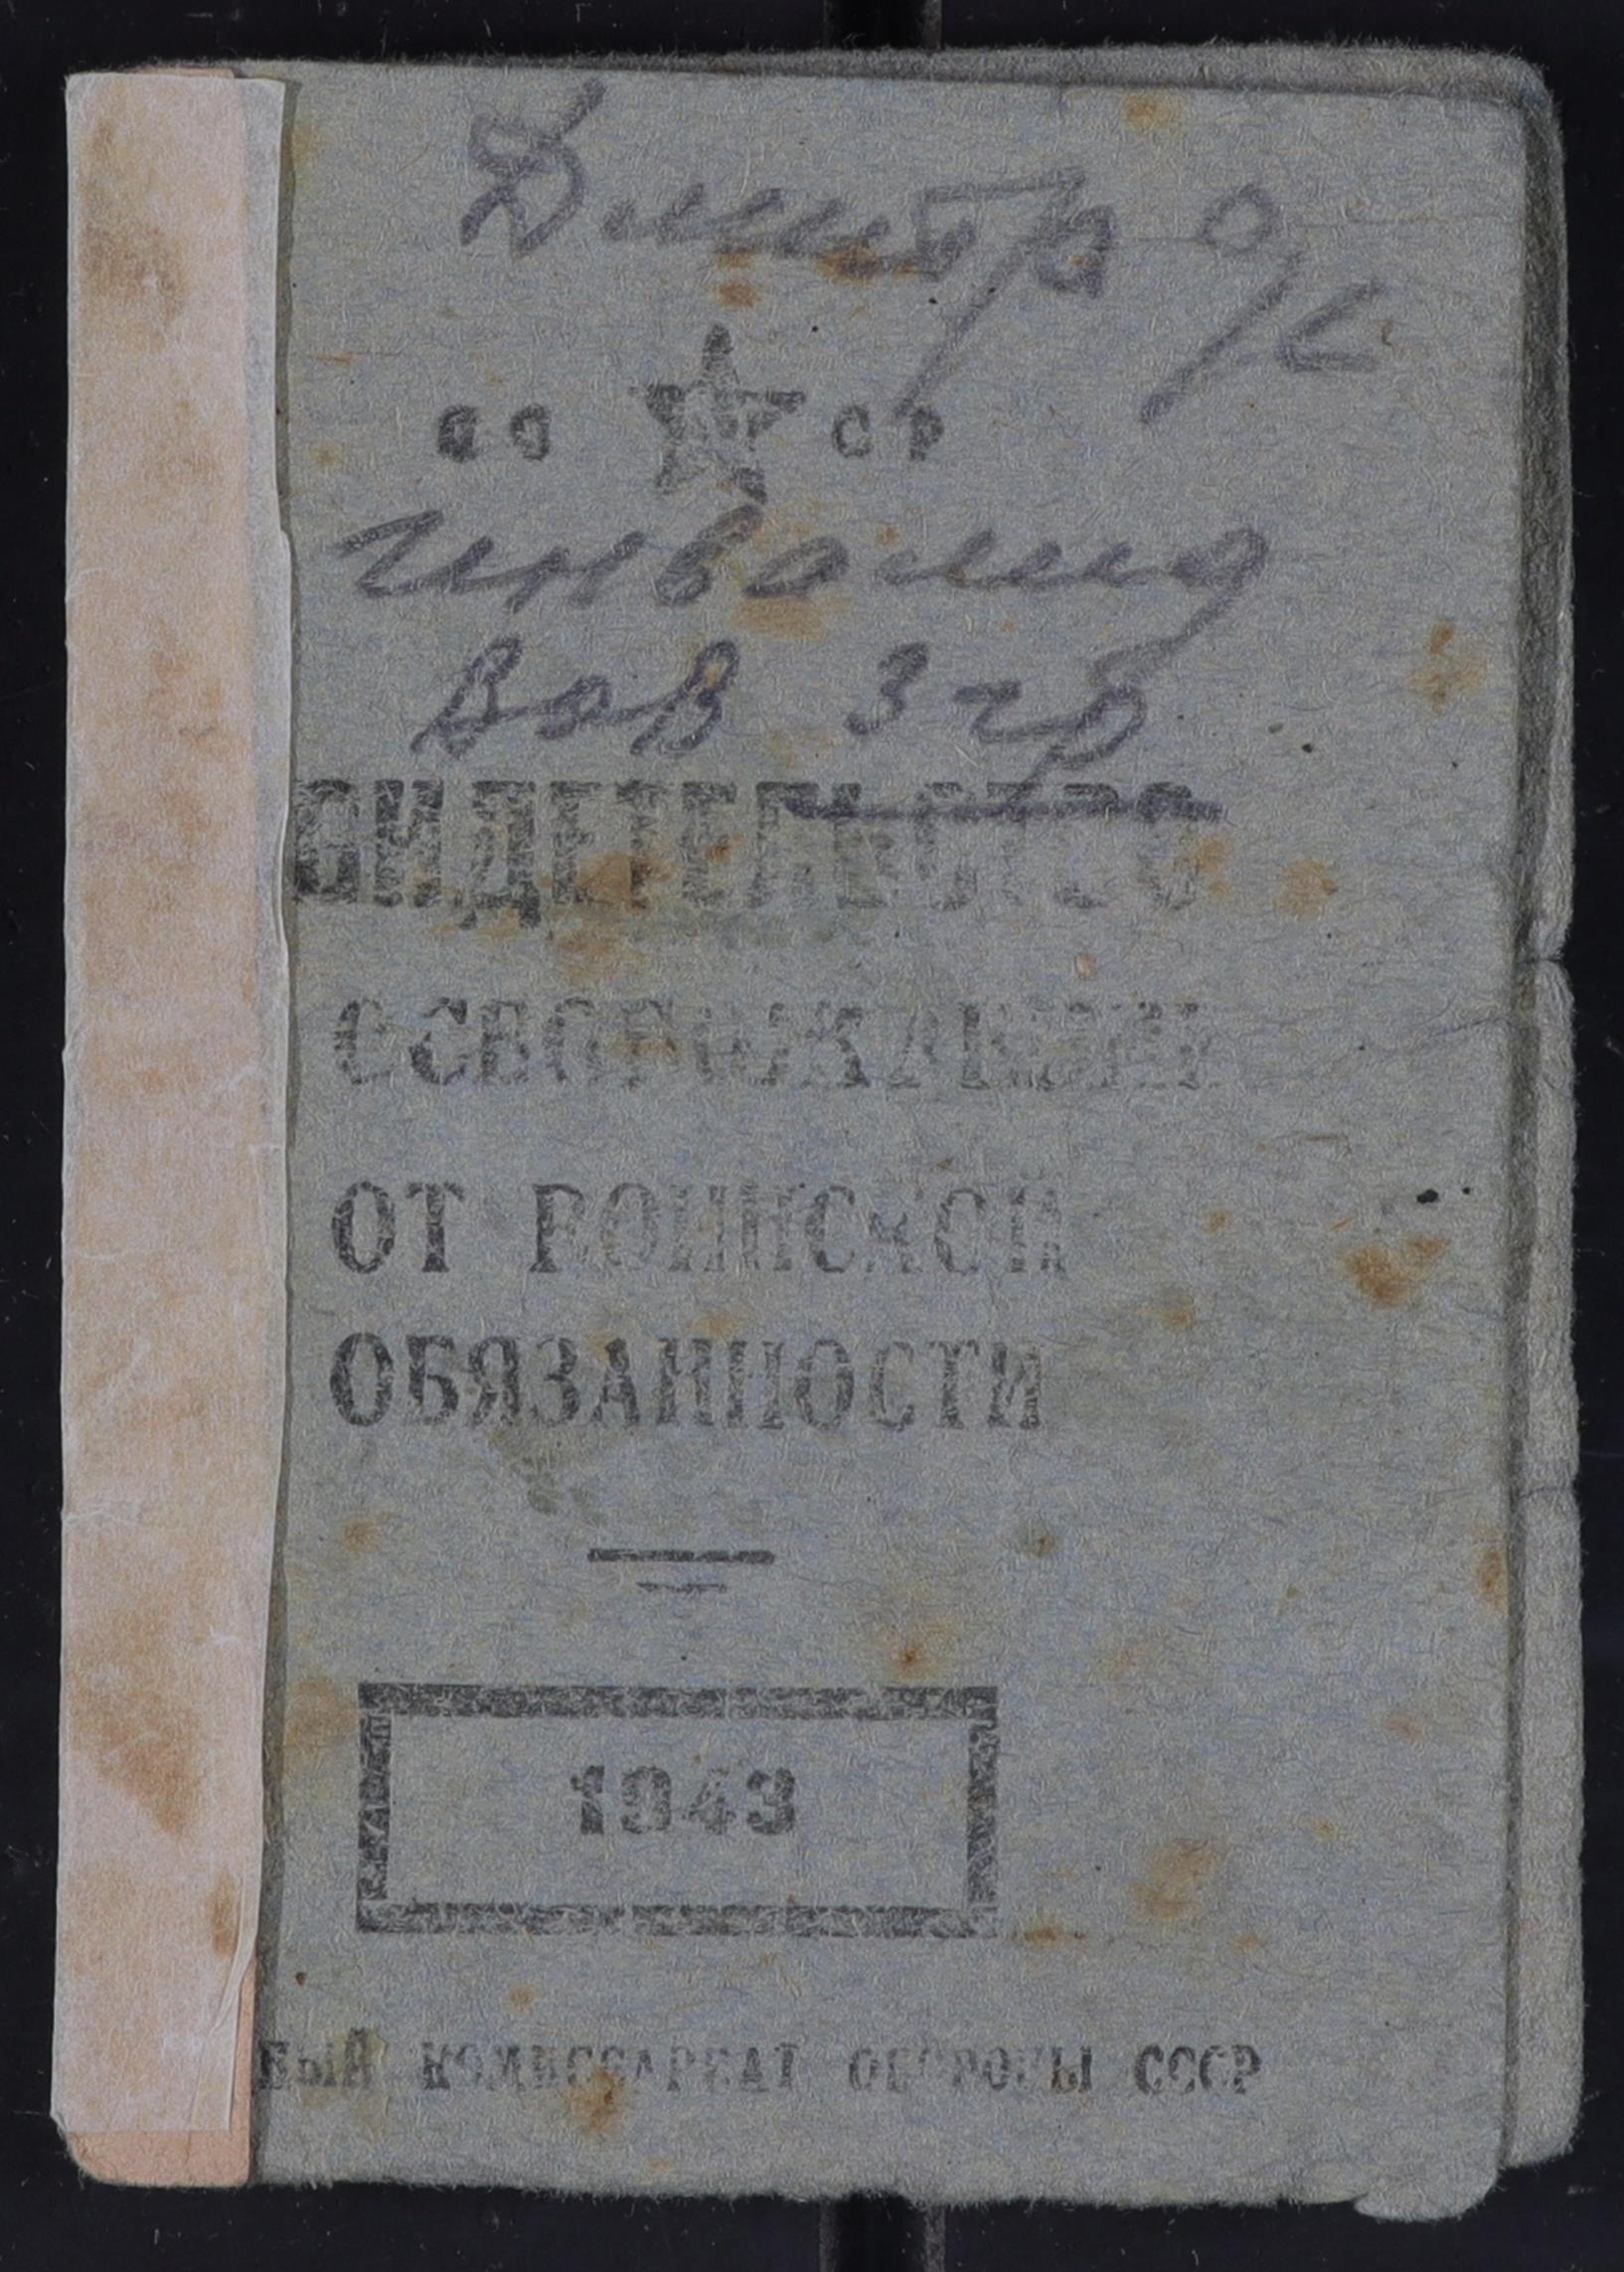 Дмитр о/с
СС СР
инвалид
ВОВ 3 гр
ВИДЕТЕЛЬСТВО
ОСВОБОЖДЕНИИ
ОТ ВОИНСКОЙ
ОБЯЗАННОСТИ
1943
НЫЙ КОМИССАРИАТ ОБОРОНЫ СССР